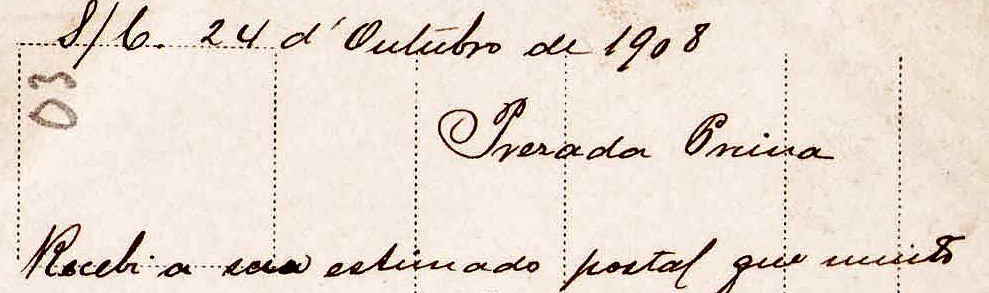 S/C. 24 d'Outubro de 1908
03
Prezada Prima
Recebi a seu estimado postal que muito